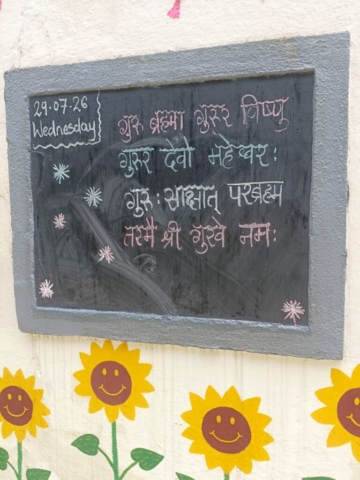 29-07-26
Wednesday
गुरु ब्रह्मा गुरुर विष्णु
गुरुर देवो महेश्वरः
गुरुः साक्षात् परब्रह्म
तस्मै श्री गुरवे नमः